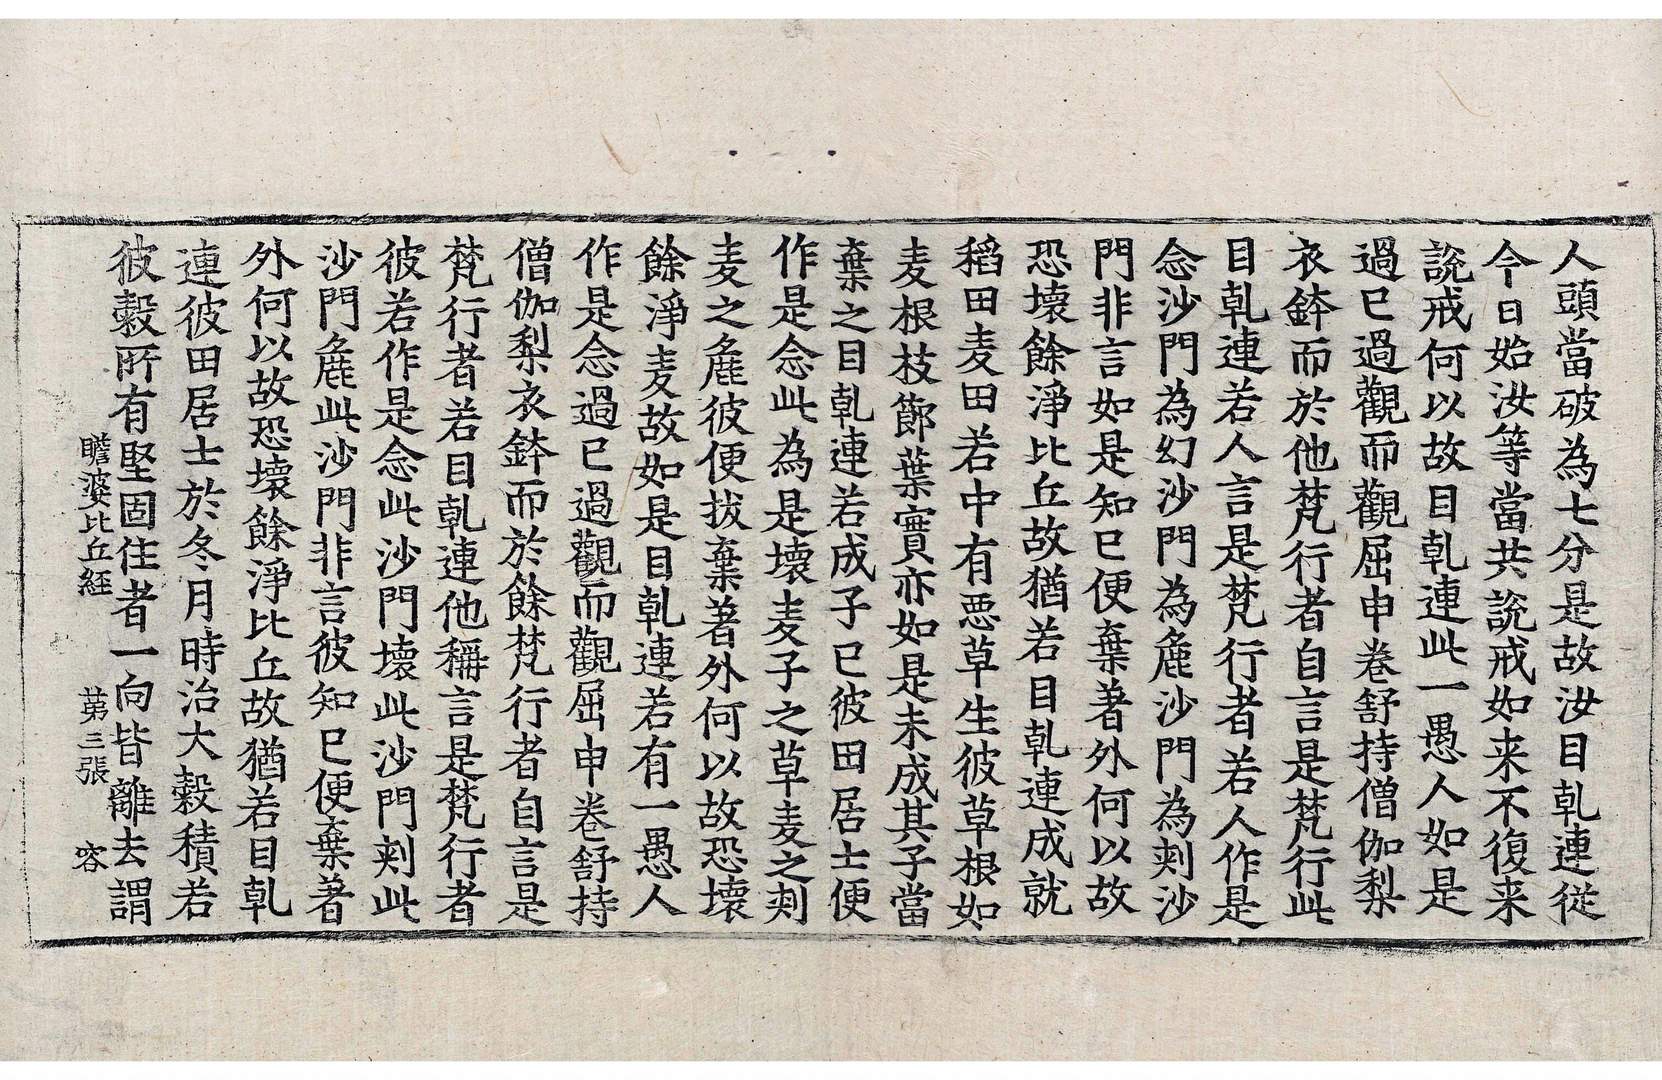 人頭當破為七分是故汝目乹連從
今日始汝等當共說戒如来不復来
說戒何以故目乹連此一愚人如是
過已過觀而觀屈申卷舒持僧伽梨
衣鉢而於他梵行者自言是梵行此
目乹連若人言是梵行者若人作是
念沙門為幻沙門為麁沙門為刾沙
門非言如是知已便棄著外何以故
恐壞餘淨比丘故猶若目乹連成就
稻田麦田若中有悪草生彼草根如
麦根枝節葉實亦如是未成其子當
棄之目乹連若成子已彼田居士便
作是念此為是壞麦子之草麦之刾
麦之麁彼便拔棄著外何以故恐壞
餘淨麦故如是目乹連若有一愚人
作是念過已過觀而觀屈申卷舒持
僧伽梨衣鉢而於餘梵行者自言是
梵行者若目乹連他稱言是梵行者
彼若作是念此沙門壞此沙門刾此
沙門麁此沙門非言彼知已便棄著
外何以故恐壞餘淨比丘故猶若目乹
連彼田居士於冬月時治大縠積若
彼縠所有堅固住者一向皆離去謂
瞻婆比丘経 苐三張 容